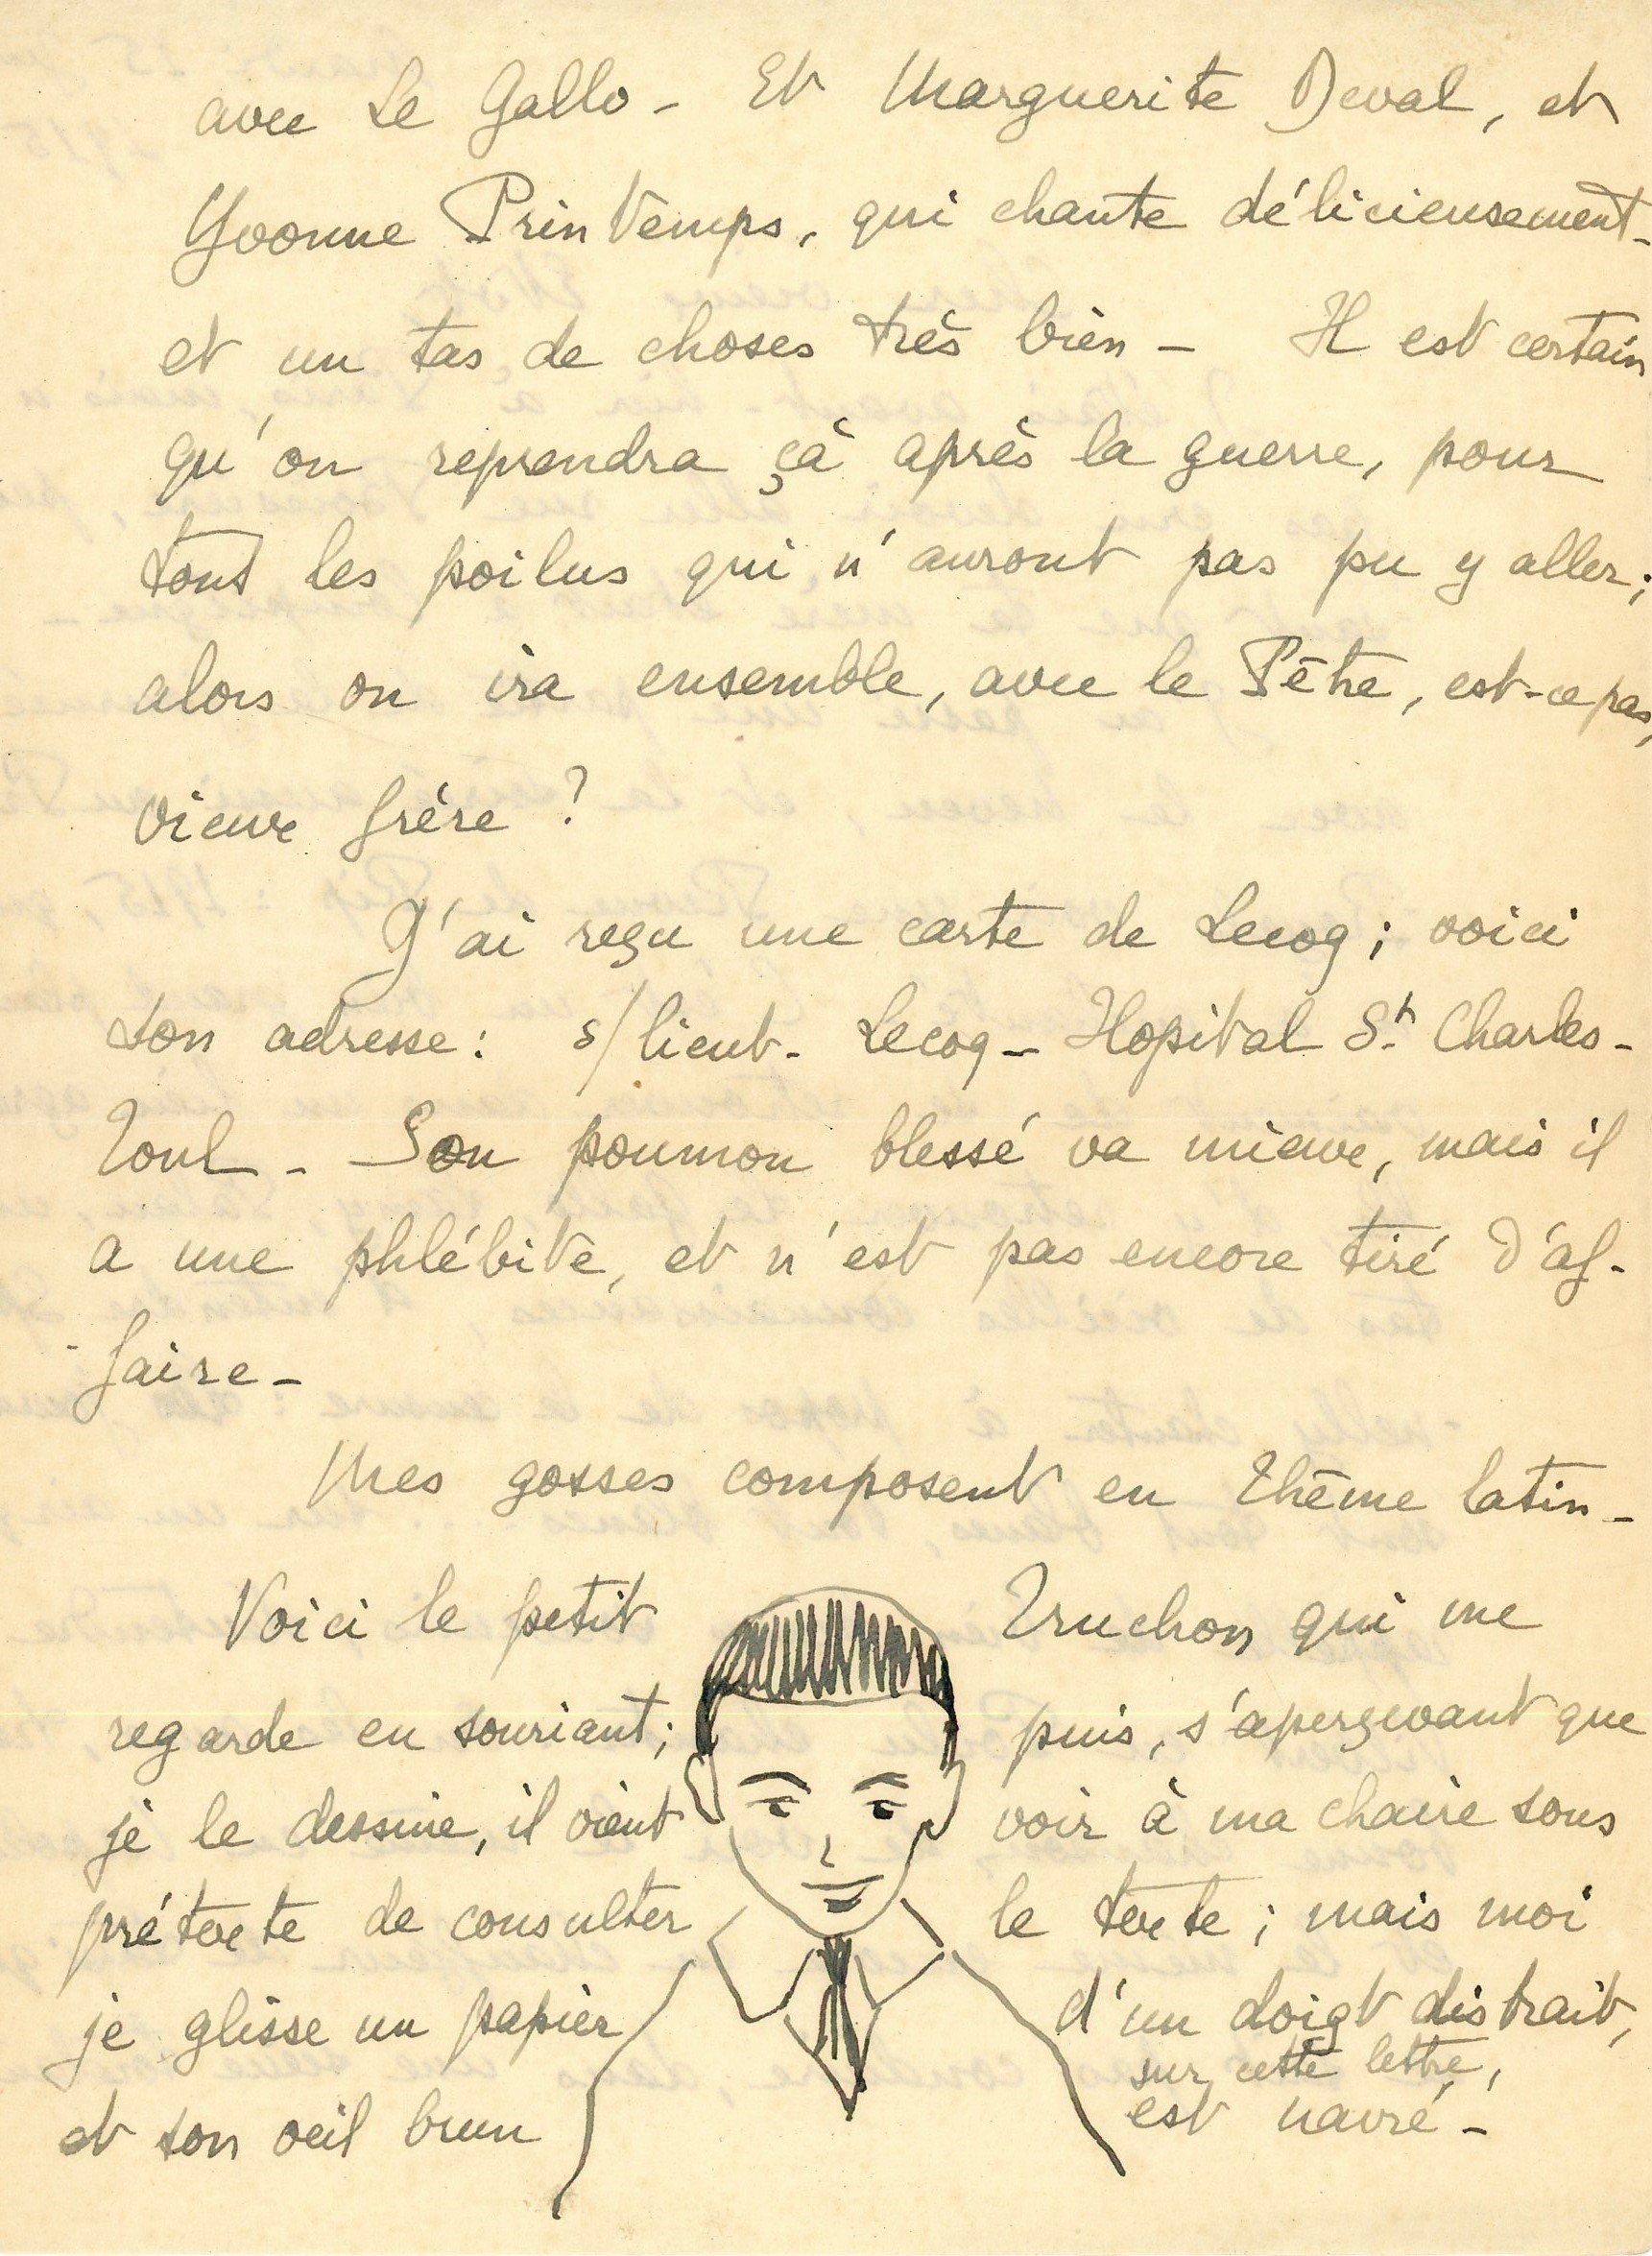 avec Le Gallo - Et Marguerite Deval, et
Yvonne Printemps, qui chante délicieusement -
et un tas de choses très bien - Il est certain
qu'on reprendra çà après la guerre, pour
tous les poilus qui n'auront pas pu y aller;
alors on ira ensemble, avec le Pêtre, est-ce pas,
vieux frère ?
J'ai reçu une carte de Lecoq; voici
son adresse: s/lieut. Lecoq - Hopital St Charles -
Toul - Son poumon blessé va mieux, mais il
a une phlébite, et n'est pas encore tiré d'af-
-faire -
Mes gosses composent en thême latin -
Voici le petit Truchon qui me
regarde en souriant; puis, s'aperçevant que
je le dessine, il vient voir à ma chaire sous
prétexte de consulter le texte; mais moi
je glisse un papier d'un doigt distrait,
sur cette lettre,
et son oeil brun est navré -